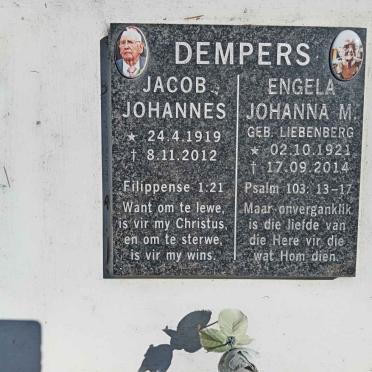 DEMPERS
JACOB
JOHANNES
★ 24.4.1919
† 8.11.2012
Filippense 1:21
Want om te lewe,
is vir my Christus,
en om te sterwe,
is vir my wins.
ENGELA
JOHANNA M.
GEB. LIEBENBERG
★ 02.10.1921
† 17.09.2014
Psalm 103: 13-17
Maar onverganklik
is die liefde van
die Here vir die
wat Hom dien.